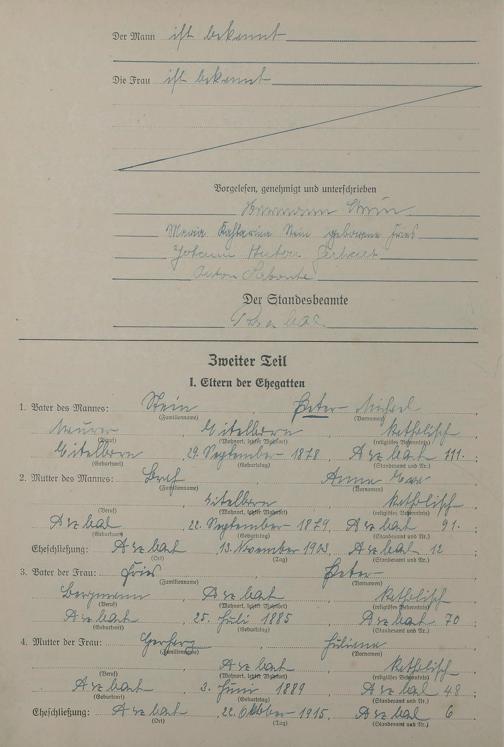 Der Mann ist bekannt
Die Frau ist bekannt
Vorgelesen, genehmigt und unterschrieben
Hermann Stein.
Maria Katharina Stein geborene Fries
Johann Anton
Anton
Der Standesbeamte
Zweiter Teil
I. Eltern der Ehegatten
1. Vater des Mannes: Stein, Peter Michael
(Familienname) (Vornamen)
Maurer, Eitelborn katholisch
(Beruf) (Wohnort, letzter Wohnort) (religiöses Bekenntnis)
Eitelborn 29. September 1878, Arzbach 111.;
(Geburtsort) (Geburtstag) (Standesamt und Nr.)
2. Mutter des Mannes: Anna
(Familienname) (Vornamen)
Eitelborn katholisch
(Beruf) (Wohnort, letzter Wohnort) (religiöses Bekenntnis)
Arzbach 22. September 1879, Arzbach 91.;
(Geburtsort) (Geburtstag) (Standesamt und Nr.)
Eheschließung: Arzbach 13. November 1903, Arzbach 12;
(Ort) (Tag) (Standesamt und Nr.)
3. Vater der Frau: Fries, Peter
(Familienname) (Vornamen)
Bergmann, Arzbach katholisch
(Beruf) (Wohnort, letzter Wohnort) (religiöses Bekenntnis)
Arzbach 25. Juli 1885, Arzbach 70
(Geburtsort) (Geburtstag) (Standesamt und Nr.)
4. Mutter der Frau: Juliana
(Familienname) (Vornamen)
Arzbach katholisch
(Beruf) (Wohnort, letzter Wohnort) (religiöses Bekenntnis)
Arzbach 3. Juni 1889, Arzbach 48;
(Geburtsort) (Geburtstag) (Standesamt und Nr.)
Eheschließung: Arzbach 22. Oktober 1915, Arzbach 6;
(Ort) (Tag) (Standesamt und Nr.)